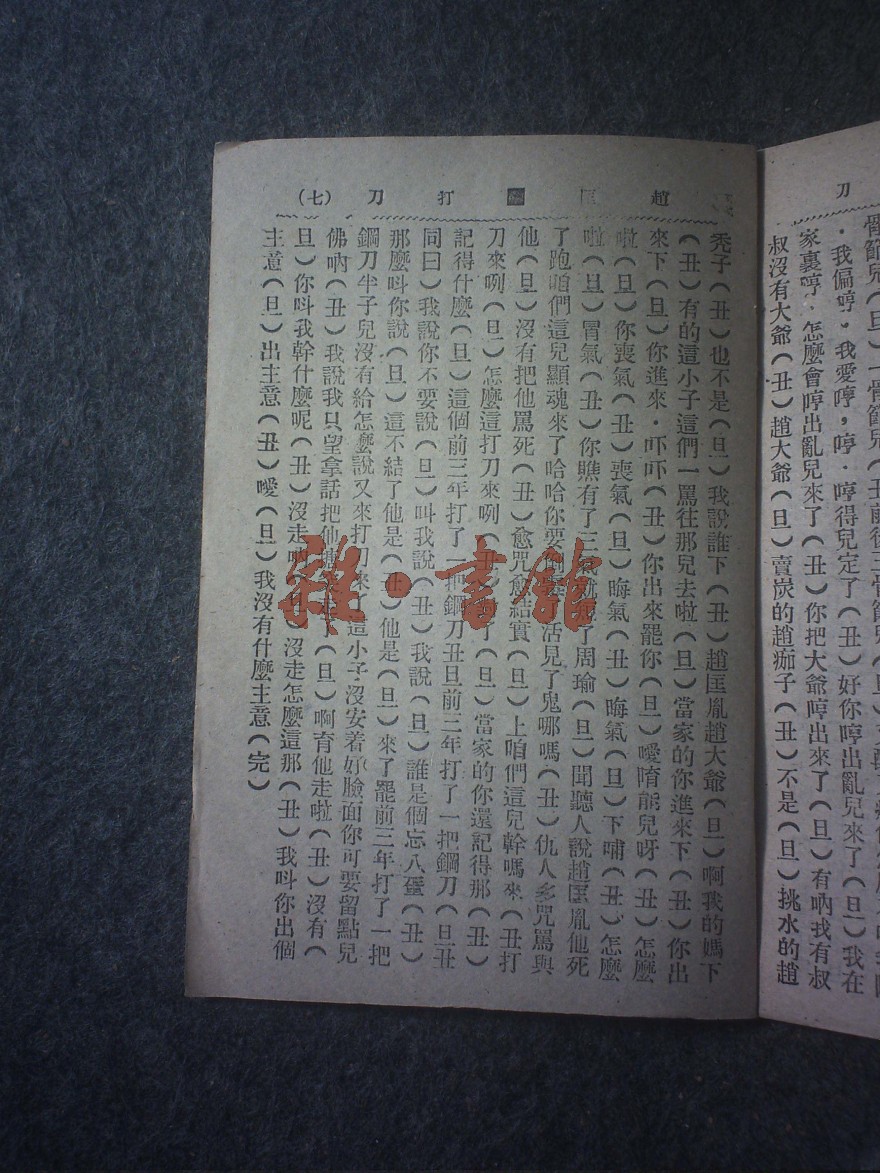 刀
骨節兒（旦）一骨節兒（丑
・我偏哼。我愛哼，哼．哼得兒定了（丑）好你哼出亂兒來了（旦）我在
家裏哼．怎麼會哼出亂兒來了（丑）你把大爺哼出來了（旦）有吶我有叔
叔沒有大爺（丑）趙大爺（旦）賣炭的趙痂子（丑）不是（旦）挑水的趙
趙匡打刀（七）
禿子（丑）也不是（旦）我說誰下（丑）趙匡胤趙大爺（旦）啊我的媽下
（丑）有的這小子這們一罵往那兒去啦（旦）當家的你進來下（丑）你出
來下（旦）你進來．吓吓（丑）你出來罷你（旦）噯隋能兒呀（丑）怎麼
啦（旦）你喪氣（丑）喪氣（旦）晦氣（丑）晦氣（旦）下哺（丑）怎麼
啦（旦）冒氣（丑）你瞧有了三了周瑜（旦）聞聽人說趙匡胤他死
了跑咱們這兒顯魂來了哈哈你要倒活見了鬼哪嗎（丑）仇人多咒罵與
他（旦）沒有把他罵死（丑）愈咒愈結實（旦）上咱們這兒幹嗎來（丑打
刀來咧（旦）怎麼這打刀來咧（丑）了（旦）當家的你還記得那（丑）
記得什麼（旦）這個前三年打了一把鋼刀丑旦前三年打了一把鋼刀（旦丑
同曰）我說你不要說（旦）叫我說（丑）我說（旦）誰是個忘八蛋（丑）
那麼叫你說（旦）這不結了他是（丑）他是（旦）來了罷前三年打了一把
鋼刀半子兒沒有給怎麼說又來打刀來了這小子．沒安着好臉面你可要留點兒
佛吶（丑）我說我只望拿話把他走了（旦）啊育他走啦（丑）沒有（
旦）你叫我幹什麼呢（丑）沒走吶（旦）沒走怎麼這那（丑）我叫你出個
主意（旦）出主意（丑）噯（旦）我沒有什麼主意（完）
雜・書館